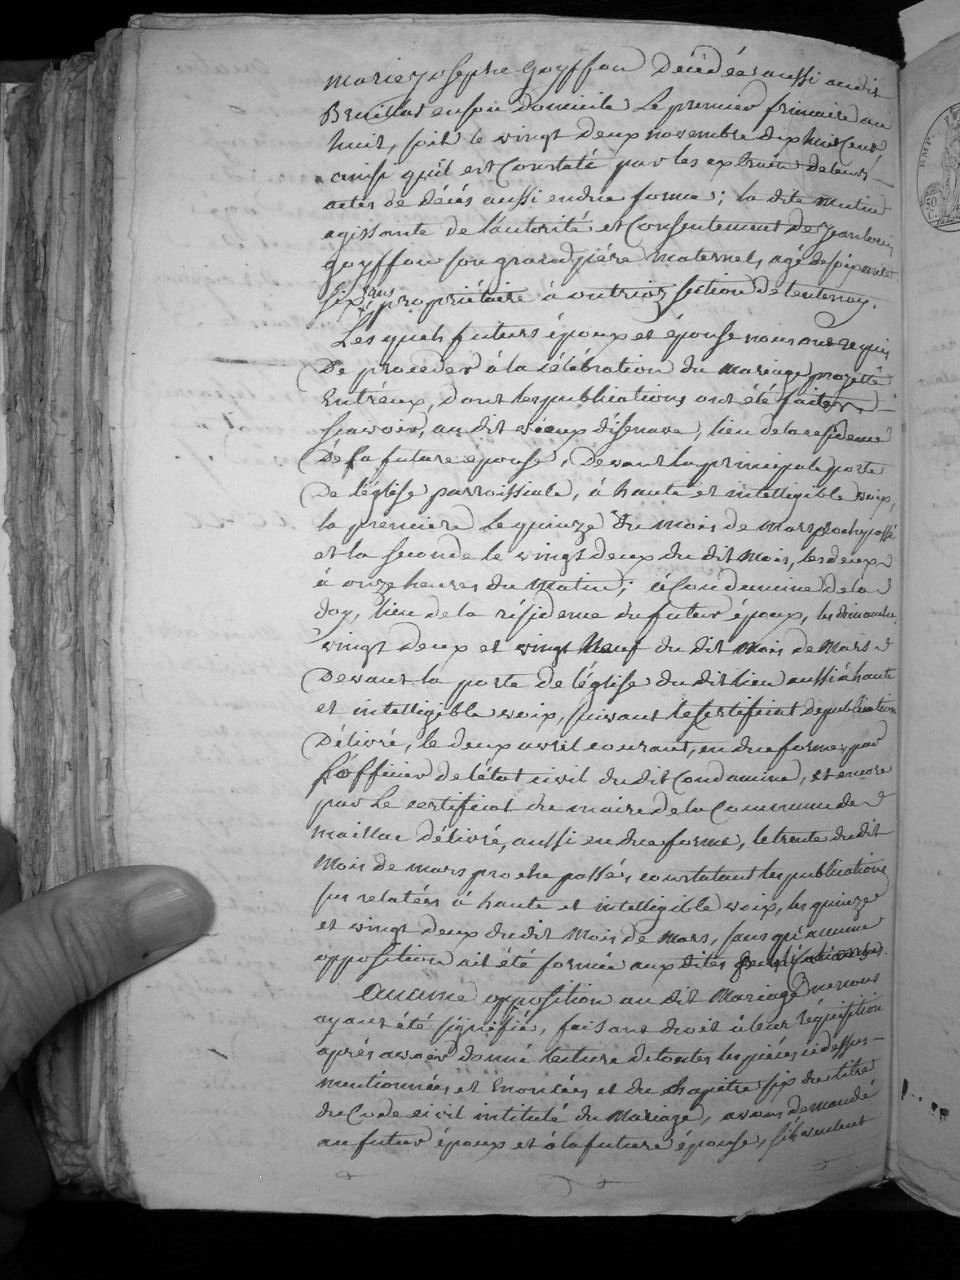 marie josephe Goyffon Décédée aussi audit
Brenillat en son domicile le premier frimaire an
huit, soit le vingt deux novembre dix huit Cent
ainsi qu'il est Constaté par les extraits de leurs
actes de décés aussi en due forme ; la dite
agissante de l'autorité et Consentement de Jean Louis
goyffon son grand père maternel, agé de soixante
six ans propriétaire à outriaz section de lantenay.
Les quels futurs époux et épouse nous ont requis
De proceder à la célébration du mariage projetté
Entréux, dont les publications ont été faites
Scavoir, au dit vieux d'isenave, lieu de la residence
De la future epouse, Devant la principale porte
De l'église parroissiale, à haute et intelligible voix,
la premiere le quinze du mois de mars proche passé
et la seconde le vingt deux du dit Mois, les deux
à onze heures du Matin ; à Condamine de la
doy, lieu de la résidence du futur époux, les dimanches
vingt deux et vingt Neuf du dit Mois de Mars
Devant la porte de l'église du dit lieu aussi à haute
et intelligible voix, suivant le Certificat de publication
Délivré, le deux avril courant, en due forme, par
l'officier de l'état civil du dit Condamine, et encore
par Le certificat du maire de la Commune de
maillac délivré, aussi en due forme, le trente du dit
Mois de mars proche passé, constatant les publications
sus relatées à haute et intelligible voix, les quinze
et vingt deux du dit Mois de Mars, sans qu'aucune
opposition ait été formée aux dites publications.
Aucune opposition au dit Mariage ne nous
ayant été signifiée, faisant droit à leur réquisition
après avoir donné lecture de toutes les pièces ci dessus
mentionnées et Enoncées et du chapitre six du titre
du Code civil intitulé du Mariage, avons demandé
au futur époux et à la future épouse, séparément